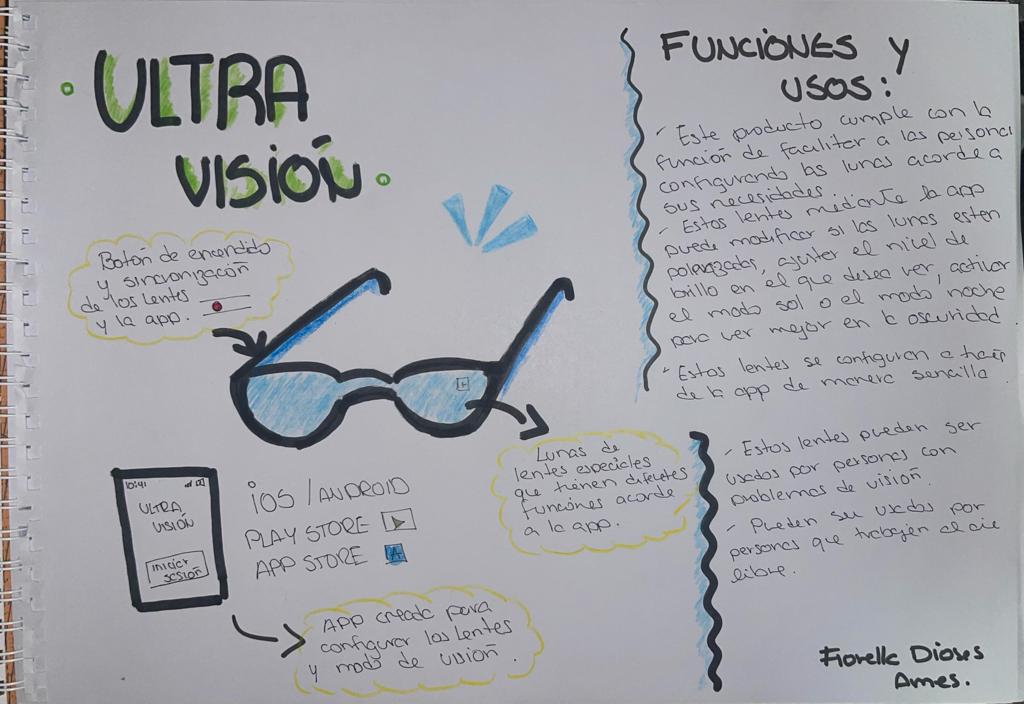 ULTRA
VISIÓN
Botón de encendido
y sincronización
de los lentes
y la app.
Lunas de
lentes especiales
que tienen diferentes
funciones acorde
a la app.
10:41
ULTRA
VISIÓN
INICIAR
SESIÓN
iOS / ANDROID
PLAY STORE
APP STORE
A
APP creada para
configurar los lentes
y modo de visión.
FUNCIONES Y
USOS:
- Este producto cumple con la
función de facilitar a las personas
configurando las lunas acorde a
sus necesidades.
- Estos lentes mediante la app
puede modificar si las lunas esten
polarizadas, ajustar el nivel de
brillo en el que desea ver, activar
el modo sol o el modo noche
para ver mejor en la oscuridad
- Estos lentes se configuran a través
de la app de manera sencilla
- Estos lentes pueden ser
usados por personas con
problemas de visión.
- Pueden ser usados por
personas que trabajen al aire
libre.
Fiorella Dioses
Ames.